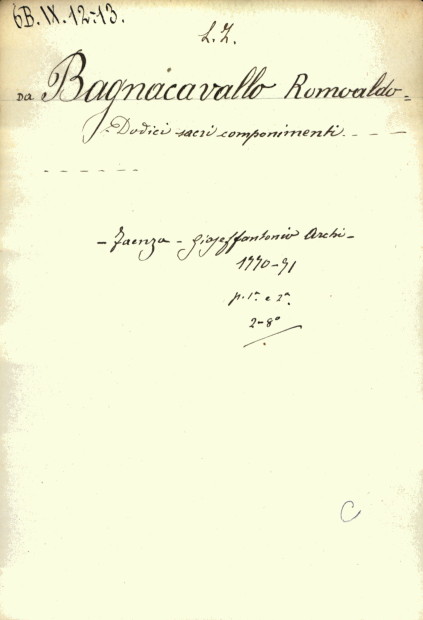 6B.IX.12-13.
L.Z.
Da Bagnacavallo Romoaldo=
Dodici sacri componimenti - - -
- - - - - -
- Faenza - Gioseffantonio Archi -
1790-91
p. 1ª. e 2ª.
2-8º
C